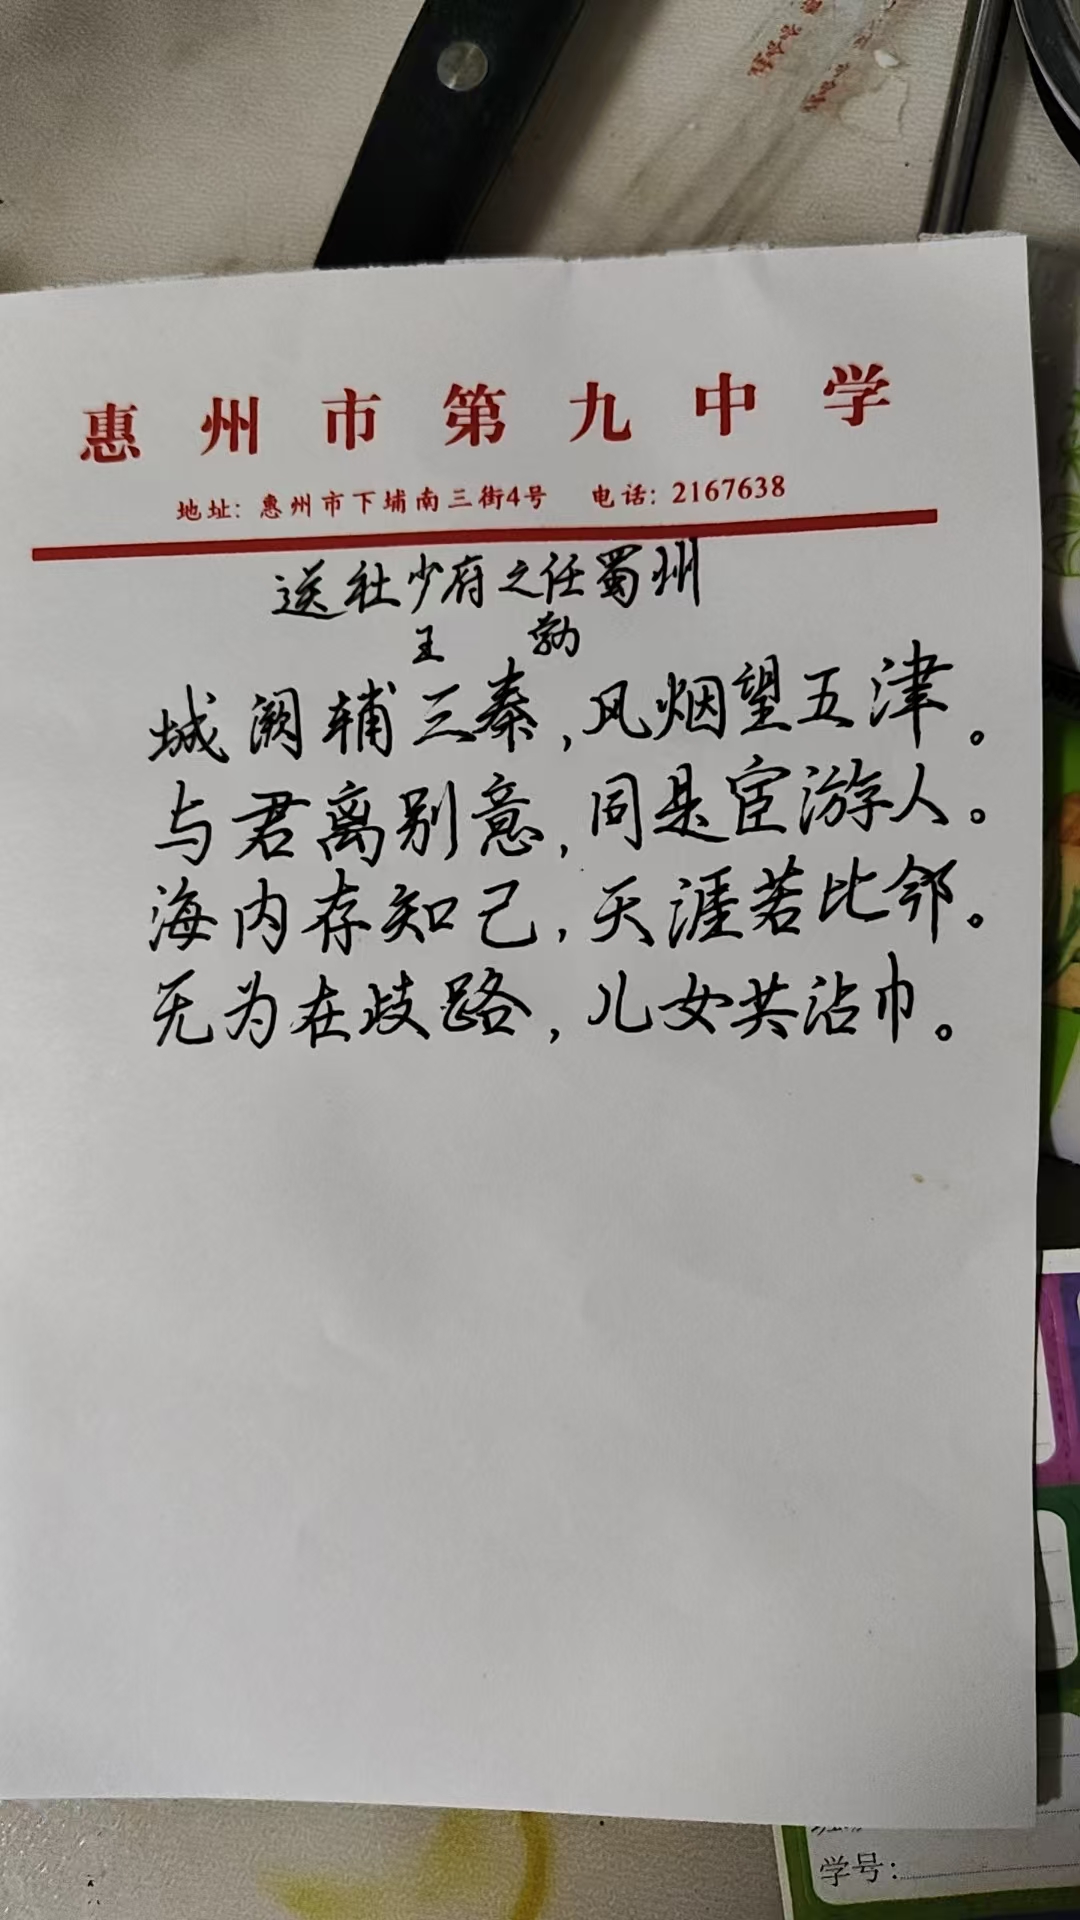 惠州市第九中学
地址：惠州市下埔南三街4号 电话：2167638
送杜少府之任蜀州
王勃
城阙辅三秦,风烟望五津。
与君离别意,同是宦游人。
海内存知己,天涯若比邻。
无为在歧路,儿女共沾巾。
学号：